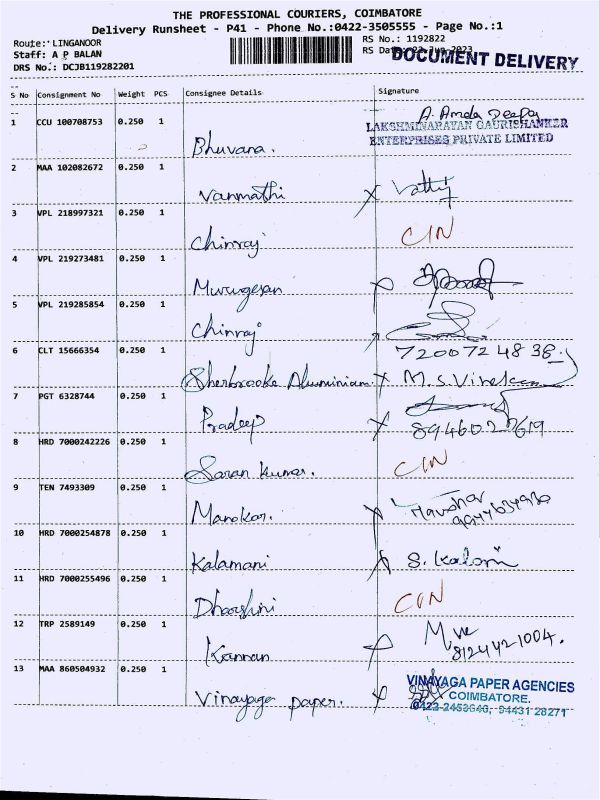 THE PROFESSIONAL COURIERS, COIMBATORE
Delivery Runsheet - P41 - Phone No.:0422-3505555 - Page No.:1
Route: LINGANOOR RS No.: 1192822
Staff: A P BALAN RS Date: 23-Jun-2023
DRS No.: DCJB119282201 DOCUMENT DELIVERY
S No Consignment No Weight PCS Consignee Details Signature
1 CCU 100708753 0.250 1 Bhuvana.
LAKSHMINARAYAN GAURISHANKER
ENTERPRISES PRIVATE LIMITED
2 MAA 102082672 0.250 1 Vanmathi
3 VPL 218997321 0.250 1 Chinraj CIN
4 VPL 219273481 0.250 1 Murugesan
5 VPL 219285854 0.250 1 Chinraj
6 CLT 15666354 0.250 1 Sherbrooke Aluminium 7200724838
M.S.Vivek
7 PGT 6328744 0.250 1 Pradeep
8 HRD 7000242226 0.250 1 Saran kumar. CIN
9 TEN 7493309 0.250 1 Manokar. Manohar
10 HRD 7000254878 0.250 1 Kalamani S. Kalani
11 HRD 7000255496 0.250 1 Dharshini CIN
12 TRP 2589149 0.250 1 Kannan 8124421004.
13 MAA 860504932 0.250 1 Vinayaga paper.
VINAYAGA PAPER AGENCIES
COIMBATORE.
0422-2453640, 94431 28271